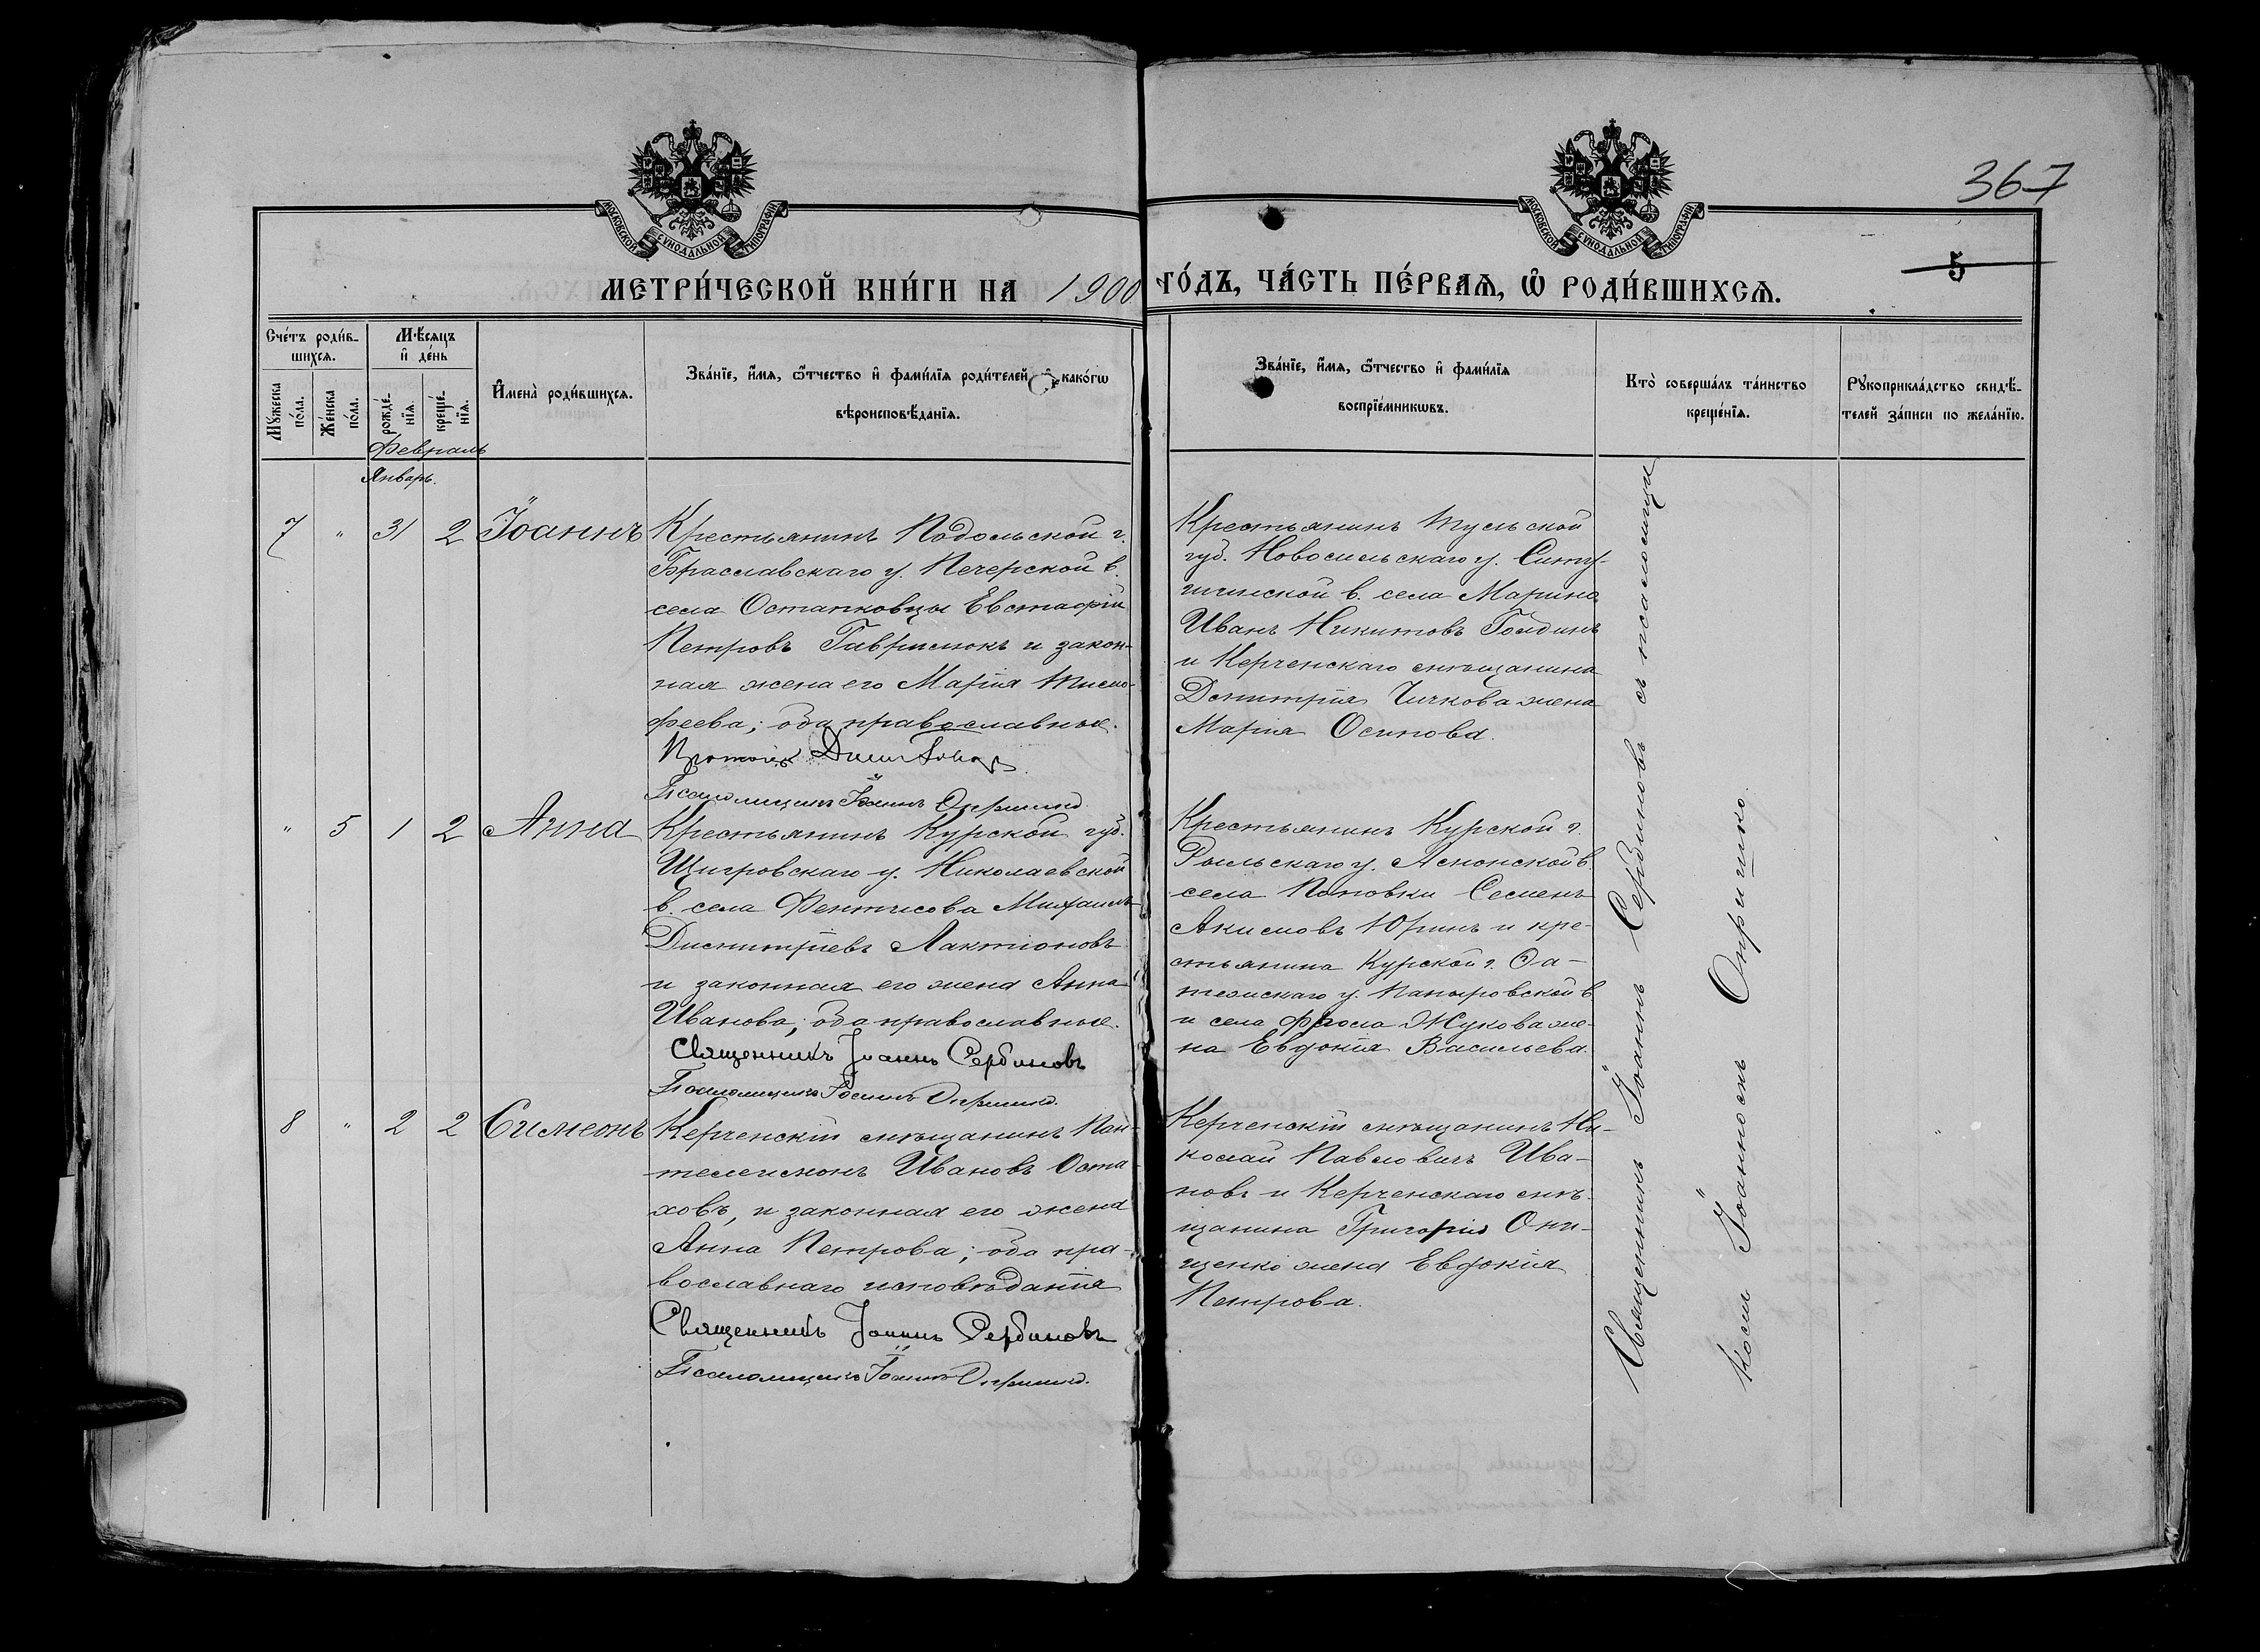 367
МОСКОВСКОЙ СѴНОДАЛЬНОЙ ТИПОГРАФІИ
МОСКОВСКОЙ СѴНОДАЛЬНОЙ ТИПОГРАФІИ
5
МЕТРИ́ЧЕСКОЙ КНИ́ГИ НА 1900 ГО́ДЪ, ЧА́СТЬ ПЕ́РВАѦ, Ѿ РОДИ́ВШИХСѦ.
Сче́тъ роди́в-
шихсѧ.
Мꙋ́жеска по́ла.
Же́нска по́ла.
Мѣ́сѧцъ
и҆ де́нь
рожде́-
нїѧ.
креще́-
нїѧ.
И҆мена̀ роди́вшихсѧ.
Зва́нїе, и҆́мѧ, ѻ҆́тчество и҆ фами́лїѧ роди́телей, и҆ како́гѡ
вѣроисповѣ́данїѧ.
Зва́нїе, и҆́мѧ, ѻ҆́тчество и҆ фами́лїѧ
воспрїе́мникѡвъ.
Кто̀ соверша́лъ та́инство
креще́нїѧ.
Рꙋкоприкла́дство свидѣ́-
телей за́писи по жела́нїю.
Февраль
Январь.
7 " 31 2 Іоаннъ
Крестьянинъ Подольской г.
Браславскаго у. Печерской в.
села Остапковцы Евстафій
Петровъ Гаврилюкъ и закон-
ная жена его Марія Тимо-
феева; оба православные.
Псаломщикъ Іоаннъ Опришко.
Крестьянинъ Тульской
губ. Новосильскаго у.
в. села
Иванъ Никитовъ
и Керченскаго мѣщанина
Димитрія Чичкова жена
Марія Осипова.
" 5 1 2 Анна
Крестьянинъ Курской губ.
Щигровскаго у. Николаевской
в. села Михаилъ
Димитріевъ Лактіоновъ
и законная его жена Анна
Иванова; оба православные.
Священникъ Іоаннъ Сербиновъ
Псаломщикъ Іоаннъ Опришко.
Крестьянинъ Курской г.
Рыльскаго у. в.
села Поповки Семенъ
Акимовъ Юринъ и кре-
стьянина Курской г. Фа-
тежскаго у. в.
и села Фрола Жукова же-
на Евдокія Васильева.
8 " 2 2 Симеонъ
Керченскій мѣщанинъ Пан-
телеимонъ Ивановъ Оста-
ховъ, и законная его жена
Анна Петрова; оба пра-
вославнаго исповѣданія
Священникъ Іоаннъ Сербиновъ
Псаломщикъ Іоаннъ Опришко.
Керченскій мѣщанинъ Ни-
колай Павловичъ Ива-
новъ и Керченскаго мѣ-
щанина Григорія Они-
щенко жена Евдокія
Петрова.
Священникъ Іоаннъ Сербиновъ съ псаломщи-
комъ Іоанномъ Опришко.